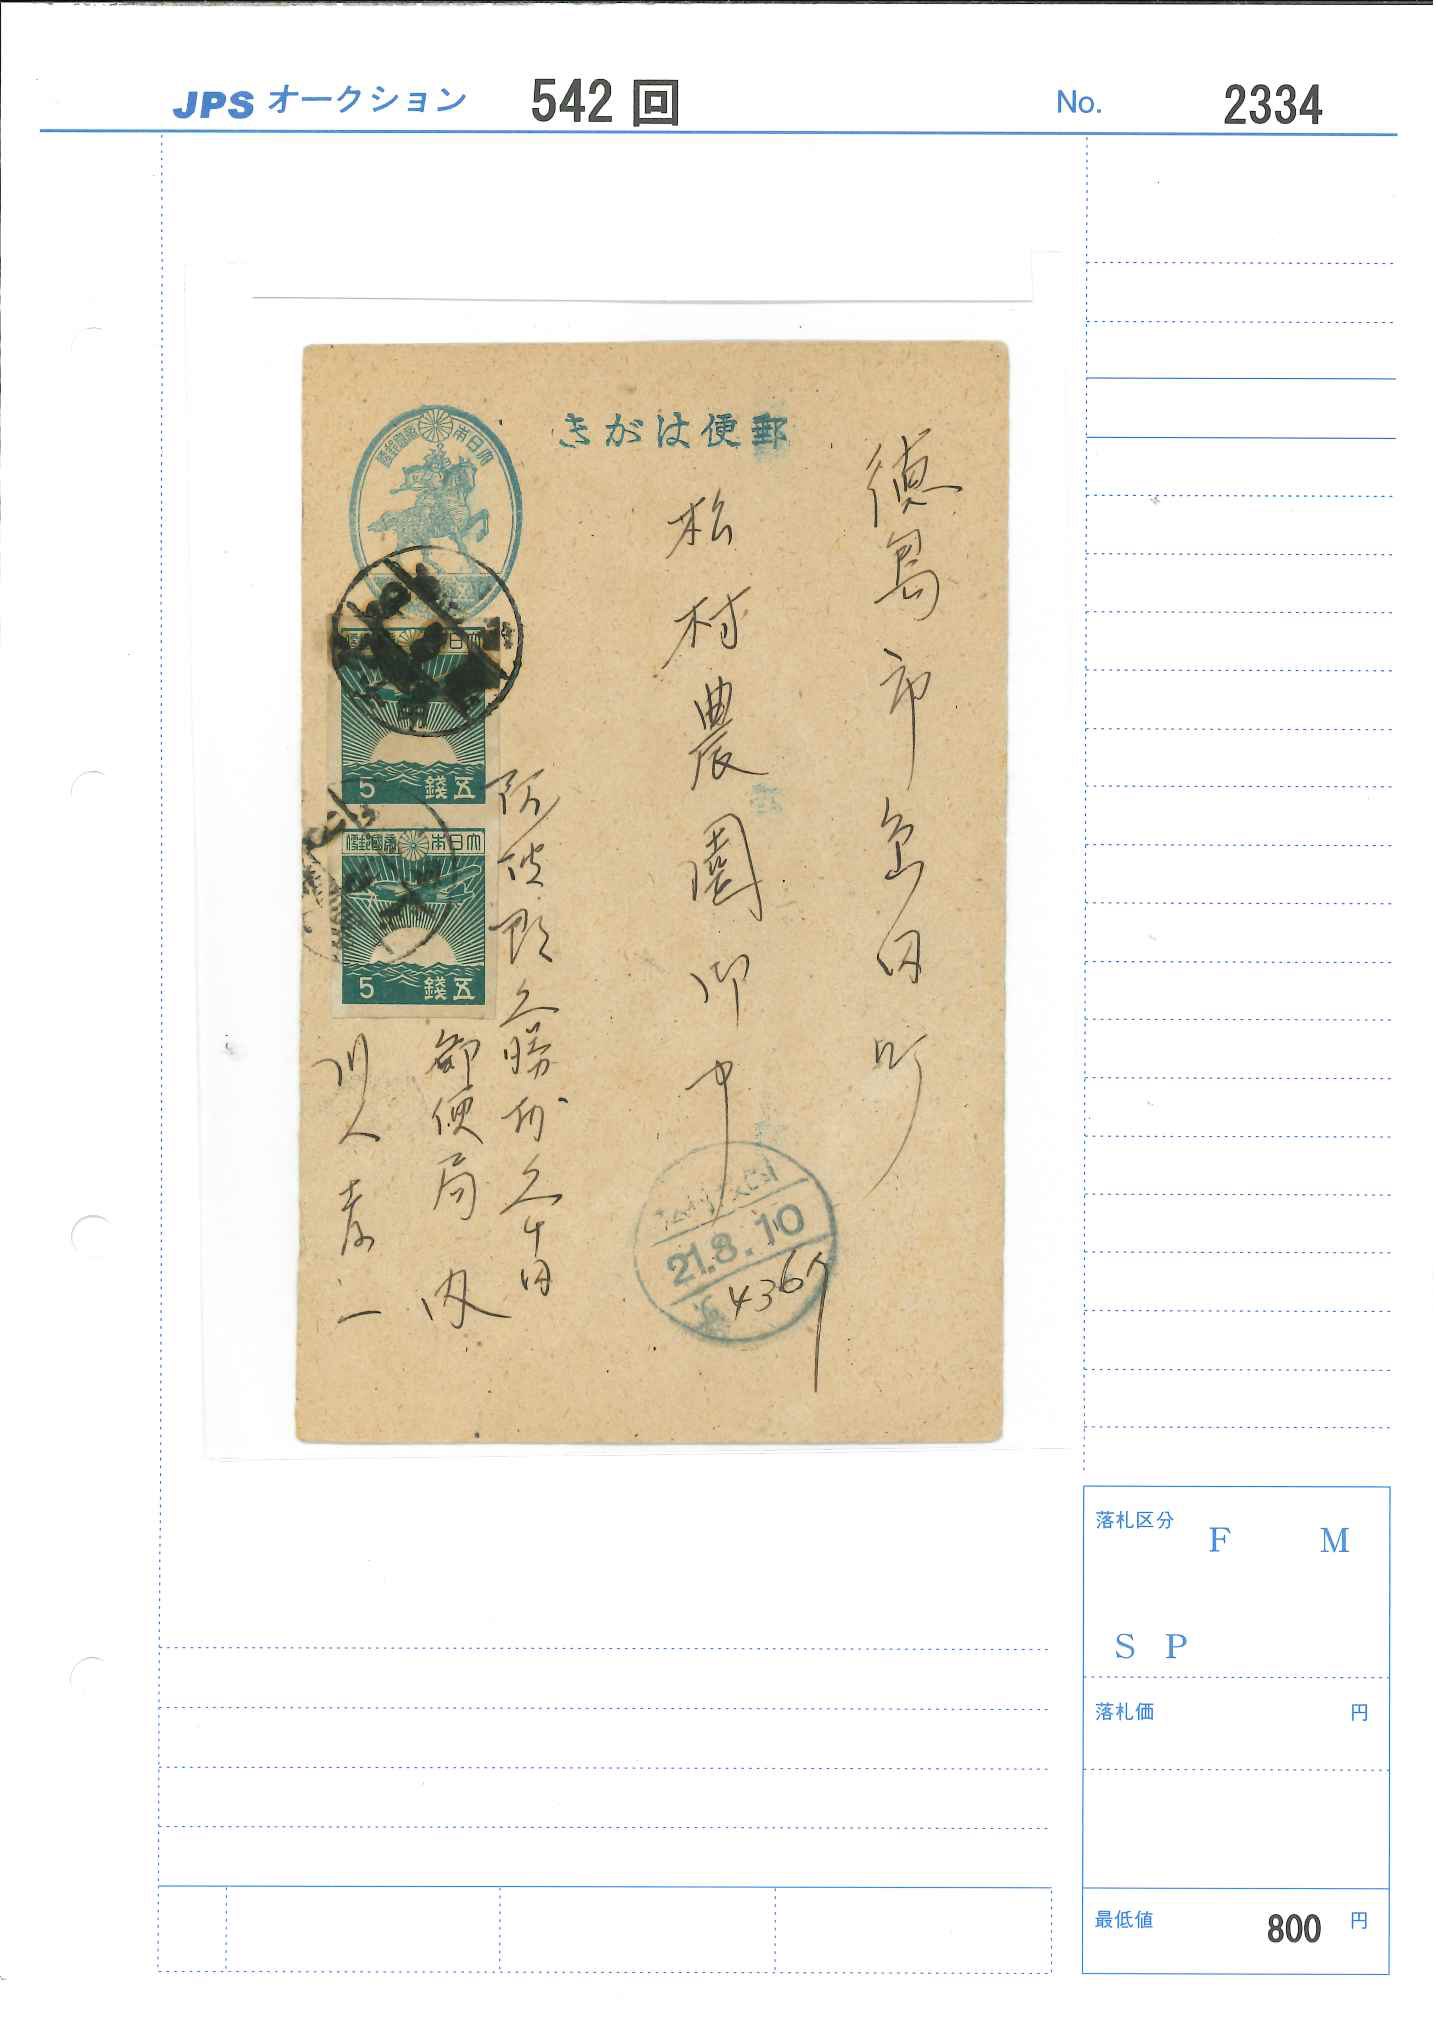 JPS オークション 542 回 No. 2334
郵便はがき
大日本帝國郵便
徳島市島田町
松村農園御中
大日本帝國郵便
5 五錢
大日本帝國郵便
5 五錢
郵便局内
川人孝一
21.8.10
4367
落札区分 F M
S P
落札価 円
最低値 800 円